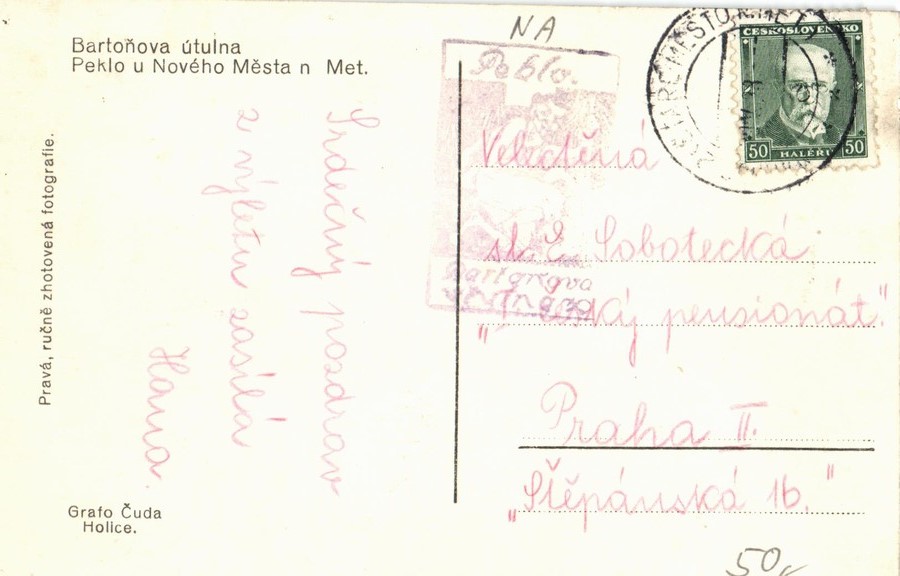 NA
Bartoňova útulna
Peklo u Nového Města n Met.
Pravá, ručně zhotovená fotografie.
Srdečný pozdrav
z výletu zasílá
Hana
Grafo Čuda
Holice.
Peklo.
ČESKOSLOVENSKO
50 HALÉŘŮ 50
MĚSTO N. MET
Velectěná
sl. E. Sobotecká
pensionát."
Praha II.
„Štěpánská 16."
50